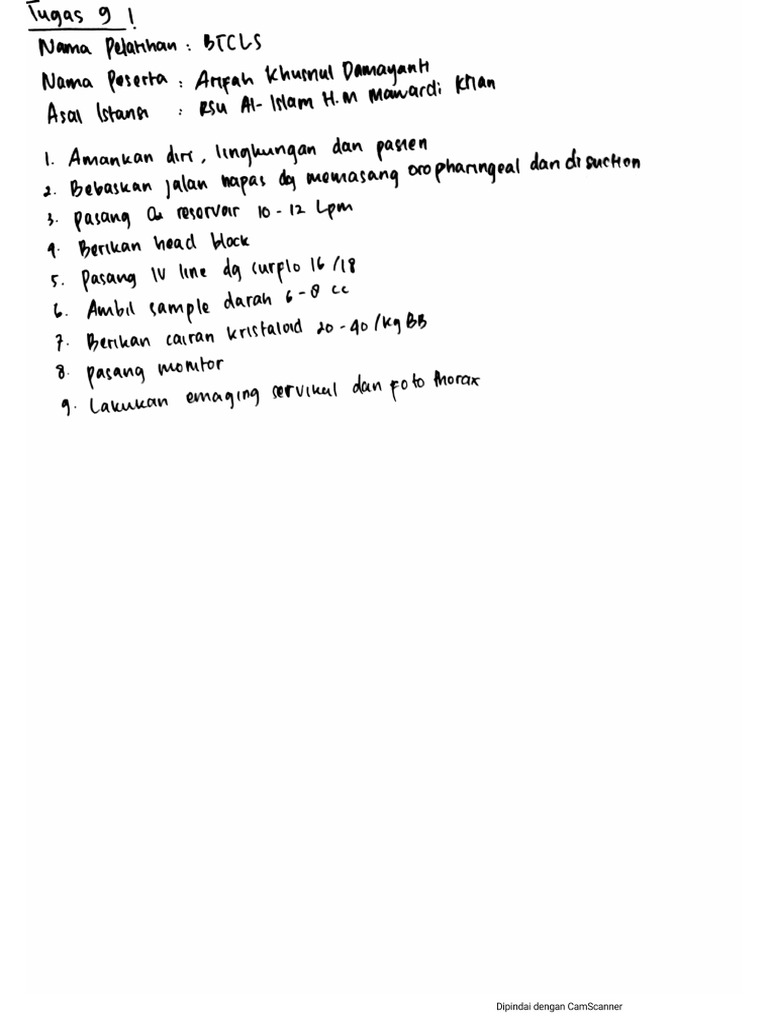 Tugas 9 !
Nama Pelatihan : BTCLS
Nama Peserta : Arifah Khusnul Damayanti
Asal Istansi : RSU Al-Islam H.M Mawardi Krian
1. Amankan diri, lingkungan dan pasien
2. Bebaskan jalan napas dg memasang oropharingeal dan di suction
3. Pasang O2 reservoir 10 - 12 Lpm
4. Berikan head block
5. Pasang IV line dg surflo 16 /18
6. Ambil sample darah 6 - 8 cc
7. Berikan cairan kristaloid 20 - 40 /kg BB
8. Pasang monitor
9. Lakukan emaging servikal dan foto thorax
Dipindai dengan CamScanner